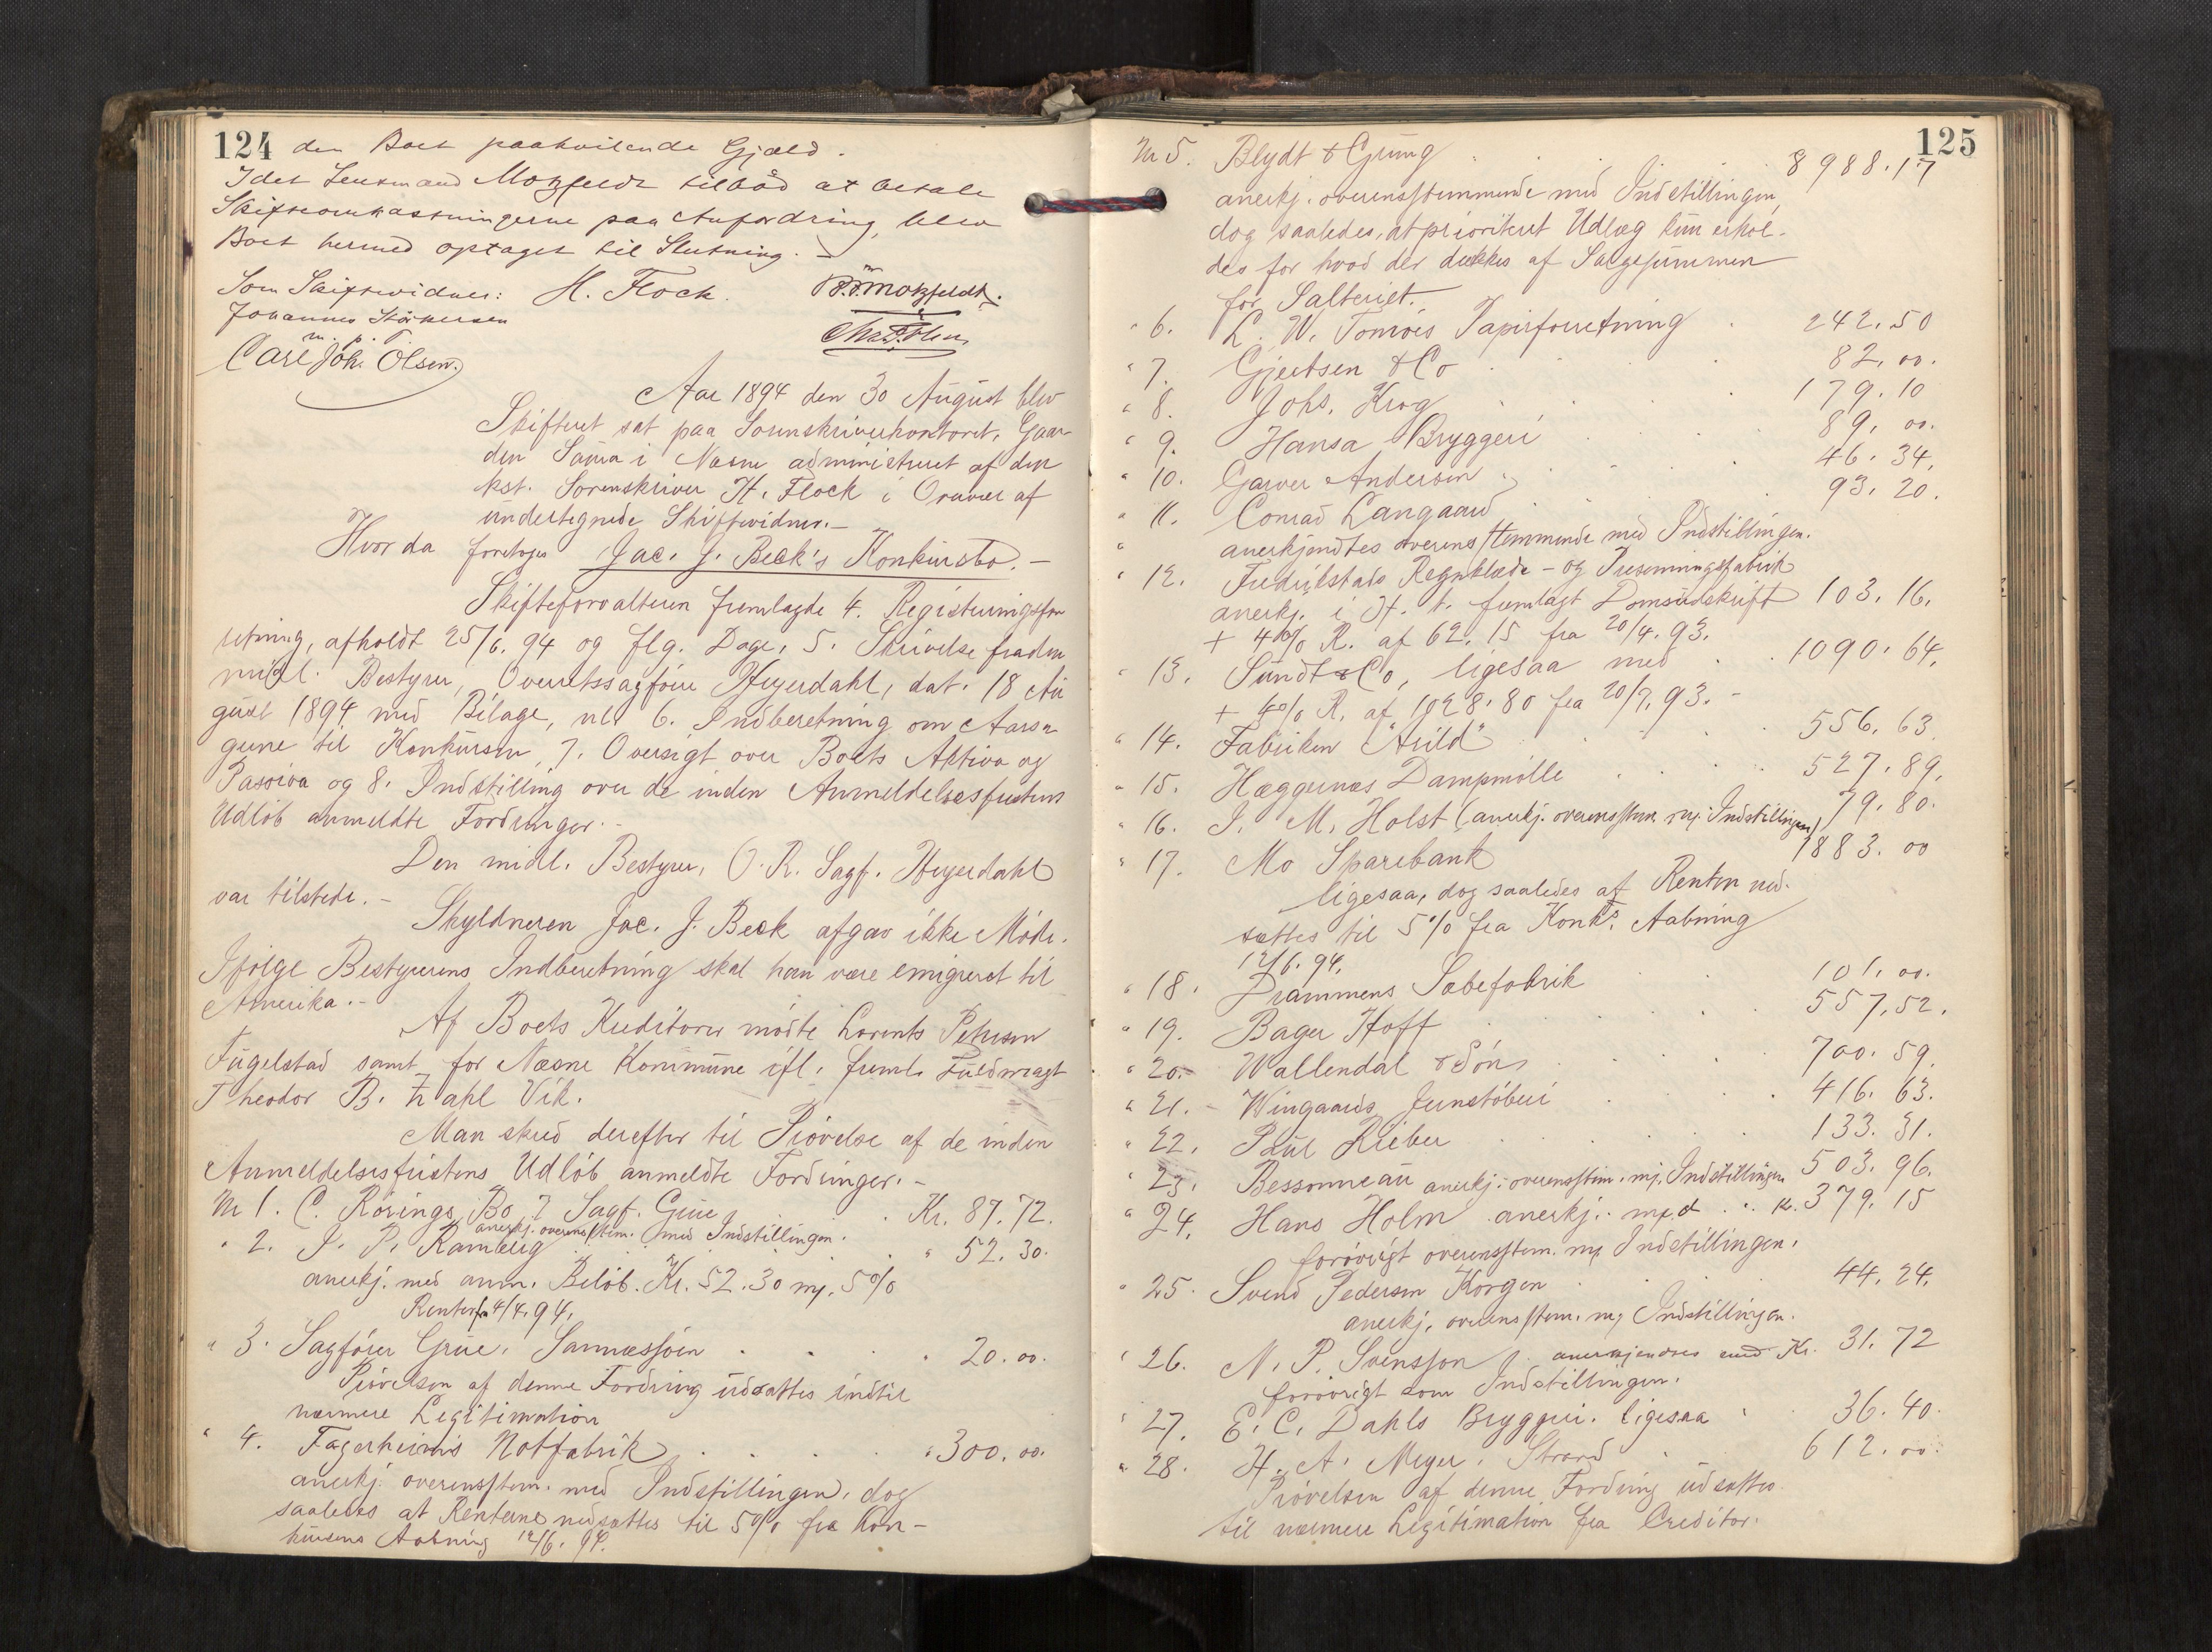 124
den Boet paahvilende Gjæld.
Idet Lensmand Motzfeldt tilbød at betale
Skifteomkostningerne paa Anfordring, blev
Boet hermed optaget til Slutning.
Som Skiftevidner: H. Flock. Motzfeldt.
Johannes
m. p. P.
Carl Joh. Olsen.
Aar 1894 den 30 August blev
Skifteret sat paa Sorenskriverkontoret, Gaar-
den i Næsne administreret af den
kst. Sorenskriver H. Flock i Overvær af
undertegnede Skiftevidner.—
Hvor da foretoges Jac. J. Beck's Konkursbo.—
Skifteforvalteren fremlagde 4. Registreringsfor
retning, afholdt 25/6. 94 og flg. Dage, 5. Skrivelse fra den
midl. Bestyrer, Overretssagfører Heyerdahl, dat. 18 Au
gust 1894 med Bilage, 6. Indberetning om Aarsa
gerne til Konkursen, 7. Oversigt over Boets Aktiva og
Passiva og 8. Indstilling over de inden Anmeldelsesfristens
Udløb anmeldte Fordringer.—
Den midl. Bestyrer, O. R. Sagf. Heyerdahl
var tilstede.—
Skyldneren Jac. J. Beck afgav ikke Møde.
Ifølge Bestyrerens Indberetning skal han være emigreret til
Amerika.—
Af Boets Kreditorer mødte Lorents Petersen
Fugelstad samt for Næsne Kommune ifl. freml. Fuldmagt
Theodor B. Zahl Vik.
Man skred derefter til Prøvelse af de inden
Anmeldelsesfristens Udløb anmeldte Fordringer.—
Nr 1. C. Rørings Bo Sagf. Grue . Kr. 87.72.
anerkj. overensstem. med Indstillingen.
" 2. J. P. . . . " 52.30.
anerkj. med anm. Beløb. Kr. 52.30 m/. 5%
Renter fra 4/4.94.
" 3. Sagfører Grue, Sannessjøen . . . " 20.00.
Prøvelsen af denne Fordring udsattes indtil
nærmere Legitimation
" 4. Fagerheims Notfabrik . . . . " 300.00.
anerkj. overensstem. med Indstillingen, dog
saaledes at Renterne nedsættes til 5% fra Kon-
kursens Aabning 12/6. 94.
125
Nr 5. Blydt & Grung . . . 8988.17
anerkj. overensstemmende med Indstillingen,
dog saaledes, at prioriteret Udlæg kun erhol-
des for hvad der dækkes af Salgssummen
for Salteriet.
" 6. L. W. Papirforretning . 242.50
" 7. Gjertsen & Co . . . 82.00.
" 8. Johs. Krog . . . 179.10
" 9. Hansa Bryggeri . . 89.00.
" 10. Garver Andersen . . . 46.34.
" 11. Conrad Langaard . . 93.20.
" anerkjendtes overensstemmende med Indstillingen.
" 12. Fredrikstads Regnklæde- og Presenningsfabrik
anerkj. i H. t. fremlagt Domsudskrift 103.16.
+ 4% R. af 62.15 fra 20/4.93.
" 13. Sundt & Co, ligesaa med . . 1090.64.
+ 4% R. af 1028.80 fra 20/7.93.—
" 14. Fabriken "Arild" . . . 556.63.
" 15. Hæggernæs Dampmølle . . . 527.89.
" 16. J. M. Holst (anerkj. overensstem. m/. Indstillingen) 79.80.
" 17. Mo Sparebank 1883.00
ligesaa, dog saaledes at Renten ned-
sættes til 5% fra Konk's Aabning
12/6.94.
" 18. Drammens Sæbefabrik . . 101.00.
" 19. Bager Hoff . . . 557.52.
" 20. Wallendal & Søn . . . 700.59.
" 21. Wingaards Jernstøberi . . . 416.63.
" 22. Paul Rieber . . . 133.31.
" 23. Bessonneau anerkj. overensstem. m/. Indstillingen 503.96.
" 24. Hans Holm anerkj. med . . Kr. 379.15
forøvrigt overensstem. m/. Indstillingen.
" 25. Svend Pedersen Korgen . . . 44.24.
anerkj. overensstem. m/ Indstillingen.
" 26. N. P. Svensson anerkjendtes med Kr. 31.72
forøvrigt som Indstillingen.
" 27. E. C. Dahls Bryggeri. ligesaa . 36.40.
" 28. H. A. Meyer, Strand . 612.00.
Prøvelsen af denne Fordring udsattes
til nærmere Legitimation fra Creditor.